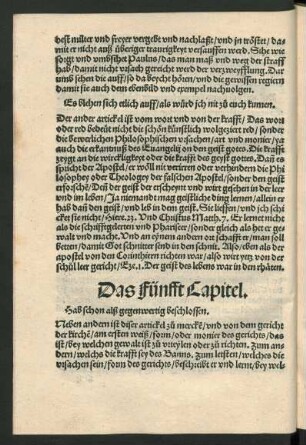 hest milter und freyer vergebe und nachlaßt/und in tröstet/das
mit er nicht auß überiger traurigkeyt versauffen werd. Sihe wie
sorgt und umbsihet Paulus/das man maß und weg der straff
hab/damit nicht ursach gereicht werd der verzweyfflung. Dar
umb sehen die auff/so da beycht hören/und die gewissen regiern
damit sie auch dem ebenbild und exempel nachuolgen.
Es blehen sich etlich auff/als würd ich nit zů euch kumen.
Der ander artickel ist vom wort und von der krafft/Das wort
oder red bedeüt nicht die schön künstlich wolgeziert red/sonder
die beweerlichen Philosophischen ursachen/art und monier/ya
auch die erkantnuß des Euangelij on den geist gottes. Die krafft
zeygt an die wircklygkeyt oder die krafft des geyst gottes. Dañ es
spricht der Apostel/er wöll nit verirren oder verhindern die Phi
losophey oder Theology der falschen Apostel/sonder den geist
erforschē/Deñ der geist der erscheynt und wirt gesehen in der leer
und im leben/Ja niemandt mag geistliche ding lernen/allein er
hab dañ den geist/und leb in dem geist. Sie lieffen/und ich schi
cket sie nicht/Hiere.23. Und Christus Math.7. Er lernet nicht
als die schrifftgelerten und Phariseer/sonder als der gewalt het.
Gleich als wers/er mache ein andern got schnitter/man soll
betten/damit Got schnitter send in den schnit. Also/eben als der
apostel von den Corinthiern richten war/also wirt yetz von der
schůl leer gericht/Eze.1. Der geist des lebens war in den rhäten.
Das Fünfft Capitel.
Hab schon alß gegenwertig beschlossen.
Neben andern ist diser artickel zů mercken/und von dem gericht
der kirchē/am ersten weiß/form/oder monier des gerichts/das
ist/bey welchen gewalt ist zů urteylen oder zů richten. Zum an
dern/welches die krafft sey des Banns. Zum letsten/welches die
ursachen sein/form des gerichts/beschreibt er und lern/bey wel